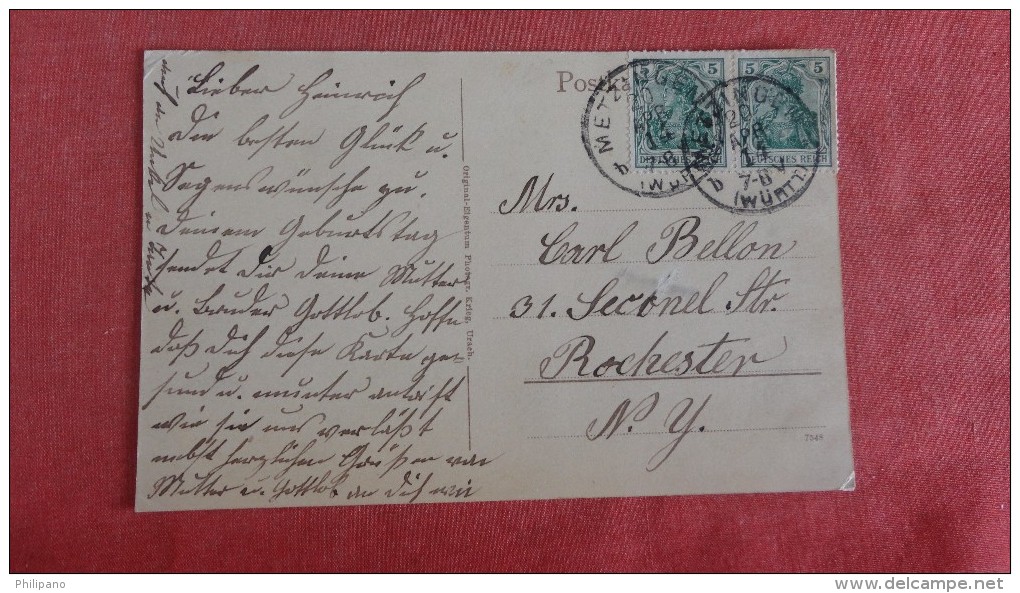 Postka
5
5
DEUTSCHES REICH
DEUTSCHES REICH
METZINGEN
20
APR
14
7-8 V
(WÜRTT.)
b
Lieber Heinrich
Die besten Glück u.
Segenswünsche zu
Deinem Geburtstag
sendet Dir Deine Mutter
u. Bruder Gottlob. Hoffe
daß Dich diese Karte ge-
sund u. munter antrifft
wie sie uns verläßt
nebst herzlichen Grüßen von
Mutter u. Gottlob an Dich wie
auch an
Original-Eigentum Photogr. Krieg, Urach.
Mrs.
Carl Bellon
31. Seconel Str.
Rochester
N. Y.
7348
Philipano
delcampe.net